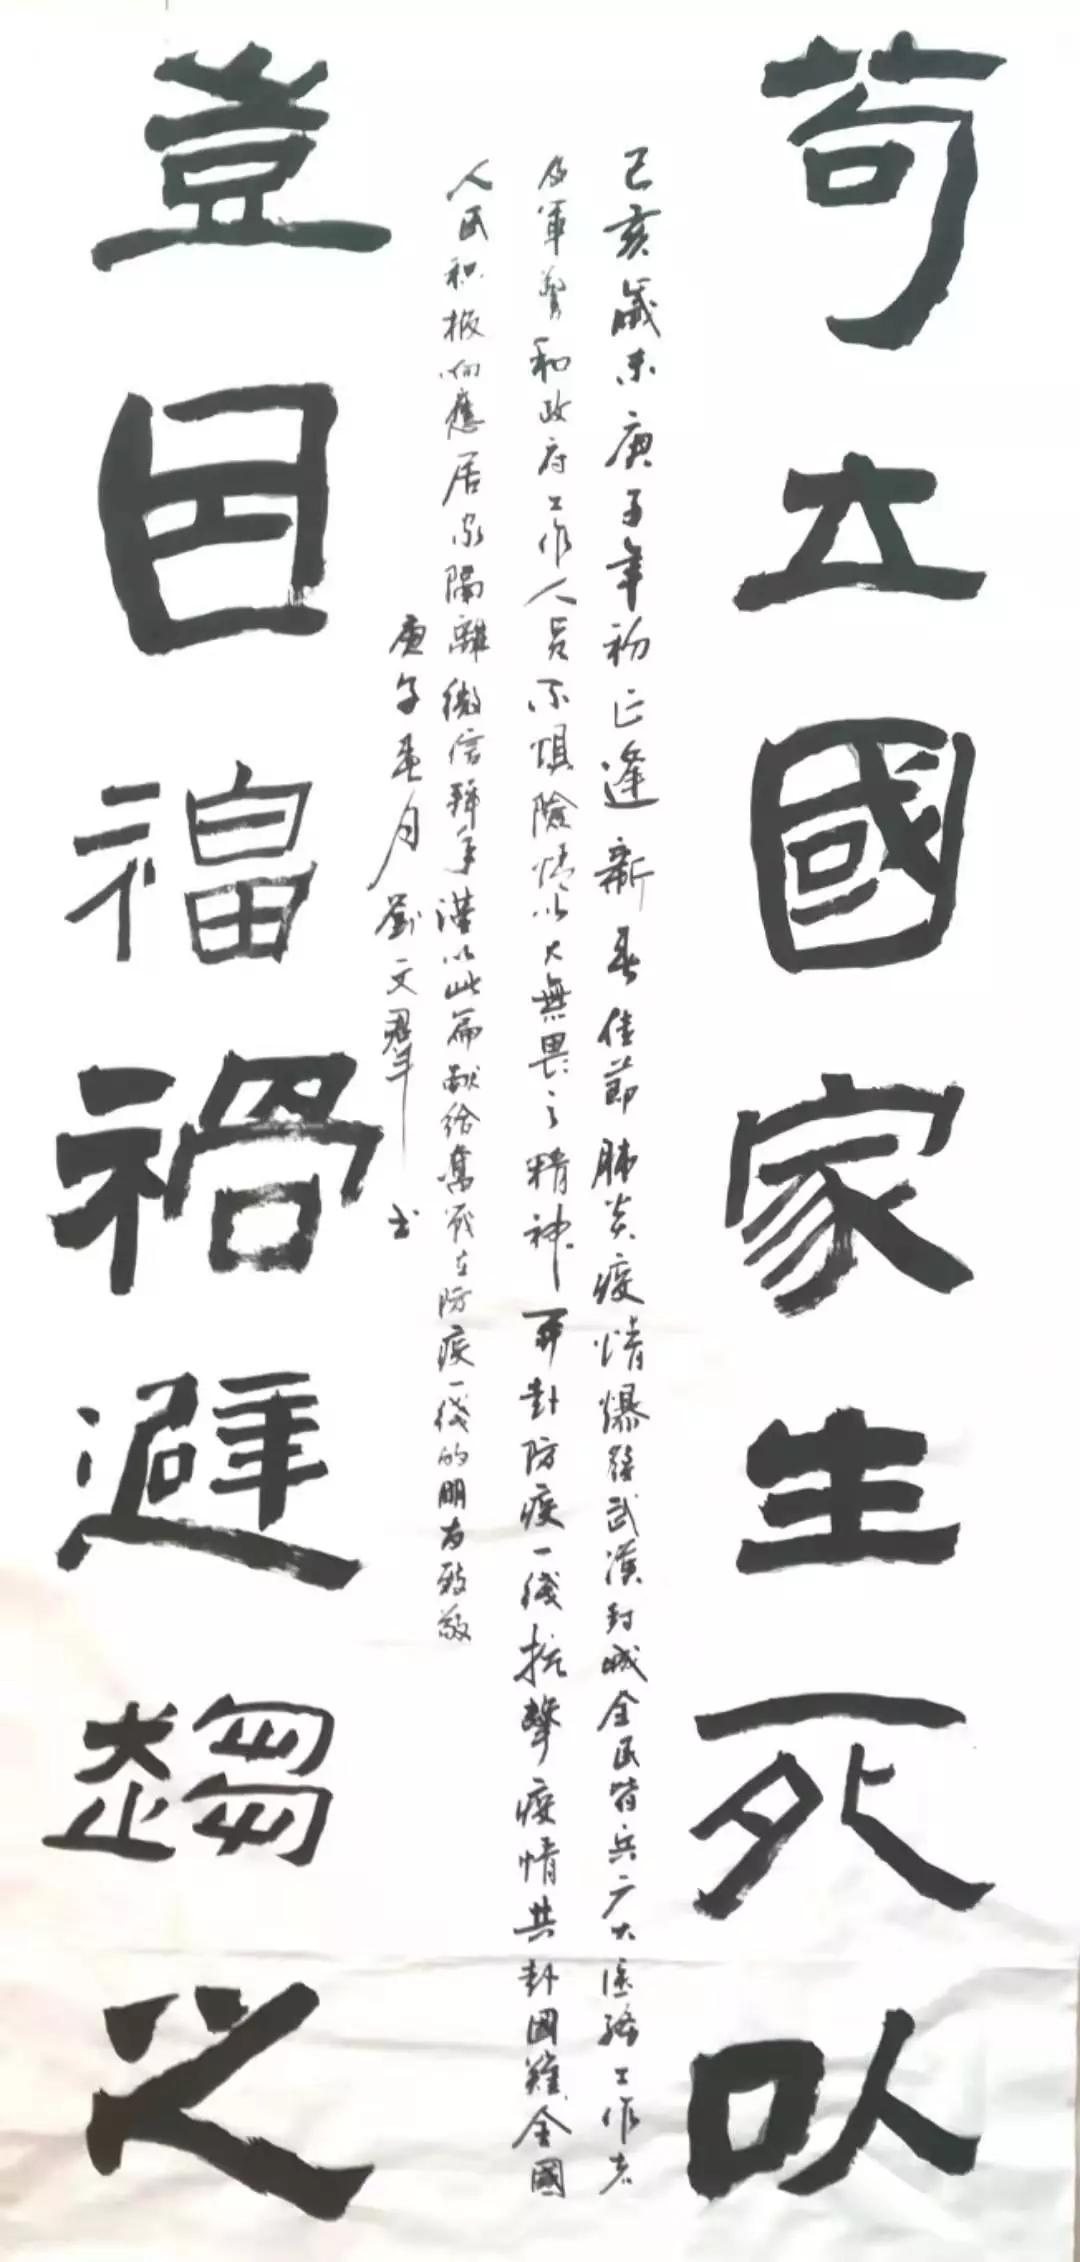 苟立國家生死以
豈因福禍避趨之
己亥歲末庚子年初正逢新春佳節肺炎疫情爆發武漢封城全民皆兵廣大医務工作者
及軍警和政府工作人員不惧險情以大無畏之精神奔赴防疫一線抗擊疫情共赴國難全國
人民积极响應居家隔離微信拜年謹以此篇献给奮战在防疫一线的朋友致敬
庚子春月劉文羣书